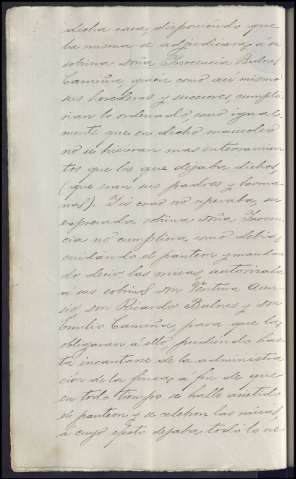 dicha casa, disponiendo que
la misma se adjudicara á su
sobrina doña Inocencia Balnes
Camiña, quien como así mismo
sus herederos y sucesores, cumpli-
rian lo ordenado, como igual-
mente que en dicho mausoleo
no se hicieran mas enterramien-
tos que los que dejaba dichos,
(que eran sus padres y herma-
nas). Si como no esperaba, su
expresada sobrina doña Inocen-
cia no cumpliera, como debia,
cuidando de panteon y mandan-
do decir las misas, autorizaba
á sus sobrinos, don Ventura
don Ricardo Balnes y don
Emilio Camiña, para que la
obligaran á ello, pudiendo has-
ta incautarse de la administra-
cion de la finca, á fin de que
en todo tiempo se halle asistido
el panteon y se celebren las misas,
á cuyo efecto dejaba todo lo ne-